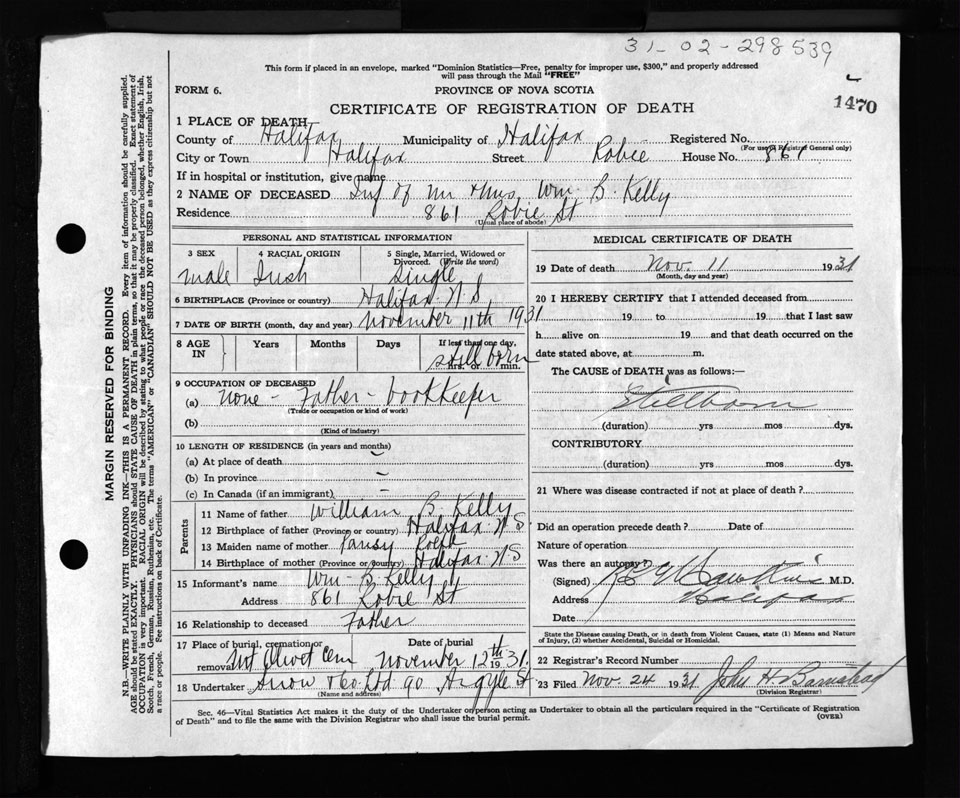 31-02-298539
This form if placed in an envelope, marked "Dominion Statistics—Free, penalty for improper use, $300," and properly addressed
will pass through the Mail "FREE"
FORM 6.
PROVINCE OF NOVA SCOTIA
1470
CERTIFICATE OF REGISTRATION OF DEATH
1 PLACE OF DEATH
County of Halifax Municipality of Halifax Registered No.
(For use of Registrar General only)
City or Town Halifax Street Robie House No. 861
If in hospital or institution, give name
2 NAME OF DECEASED Inf of Mr & Mrs Wm. B. Kelly
Residence 861 Robie St
(Usual place of abode)
PERSONAL AND STATISTICAL INFORMATION
3 SEX
4 RACIAL ORIGIN
5 Single, Married, Widowed or
Divorced. (Write the word)
male Irish Single
6 BIRTHPLACE (Province or country) Halifax N.S
7 DATE OF BIRTH (month, day and year) November 11th 1931
8 AGE IN
Years Months Days
If less than one day,
hrs. or min.
still born
9 OCCUPATION OF DECEASED
(a) none - Father - bookkeeper
(Trade or occupation or kind of work)
(b)
(Kind of industry)
10 LENGTH OF RESIDENCE (in years and months)
(a) At place of death
(b) In province –
(c) In Canada (if an immigrant) –
Parents
11 Name of father William B. Kelly
12 Birthplace of father (Province or country) Halifax N.S.
13 Maiden name of mother Pansy
14 Birthplace of mother (Province or country) Halifax N.S
15 Informant's name Wm - B Kelly
Address 861 Robie St
16 Relationship to deceased Father
17 Place of burial, cremation or
removal Mt Olivet Cem
Date of burial
November 12th 1931.
18 Undertaker Snow & Co. Ltd 90 Argyle St.
(Name and address)
MEDICAL CERTIFICATE OF DEATH
19 Date of death Nov. 11 1931
(Month, day and year)
20 I HEREBY CERTIFY that I attended deceased from
19 to 19 that I last saw
h alive on 19 and that death occurred on the
date stated above, at m.
The CAUSE of DEATH was as follows:
Stillborn
(duration) yrs mos dys.
CONTRIBUTORY
(duration) yrs mos dys.
21 Where was disease contracted if not at place of death?
Did an operation precede death? Date of
Nature of operation
Was there an autopsy?
(Signed) M.D.
Address Halifax
Date
State the Disease causing Death, or in death from Violent Causes, state (1) Means and Nature
of Injury, (2) whether Accidental, Suicidal or Homicidal.
22 Registrar's Record Number
23 Filed Nov. 24 1931 John H Barnstead
(Division Registrar)
Sec. 46—Vital Statistics Act makes it the duty of the Undertaker or person acting as Undertaker to obtain all the particulars required in the "Certificate of Registration
of Death" and to file the same with the Division Registrar who shall issue the burial permit.
(OVER)
MARGIN RESERVED FOR BINDING
N.B.—WRITE PLAINLY WITH UNFADING INK—THIS IS A PERMANENT RECORD. Every item of information should be carefully supplied.
AGE should be stated EXACTLY. PHYSICIANS should STATE CAUSE OF DEATH in plain terms, so that it may be properly classified. Exact statement of
OCCUPATION is very important. RACIAL ORIGIN will be described by stating to what people or race the deceased person belonged, whether English, Irish,
Scotch, French, German, Russian, Ruthenian, etc. The terms "AMERICAN" or "CANADIAN" SHOULD NOT BE USED as they express citizenship but not
a race or people. See instructions on back of Certificate.